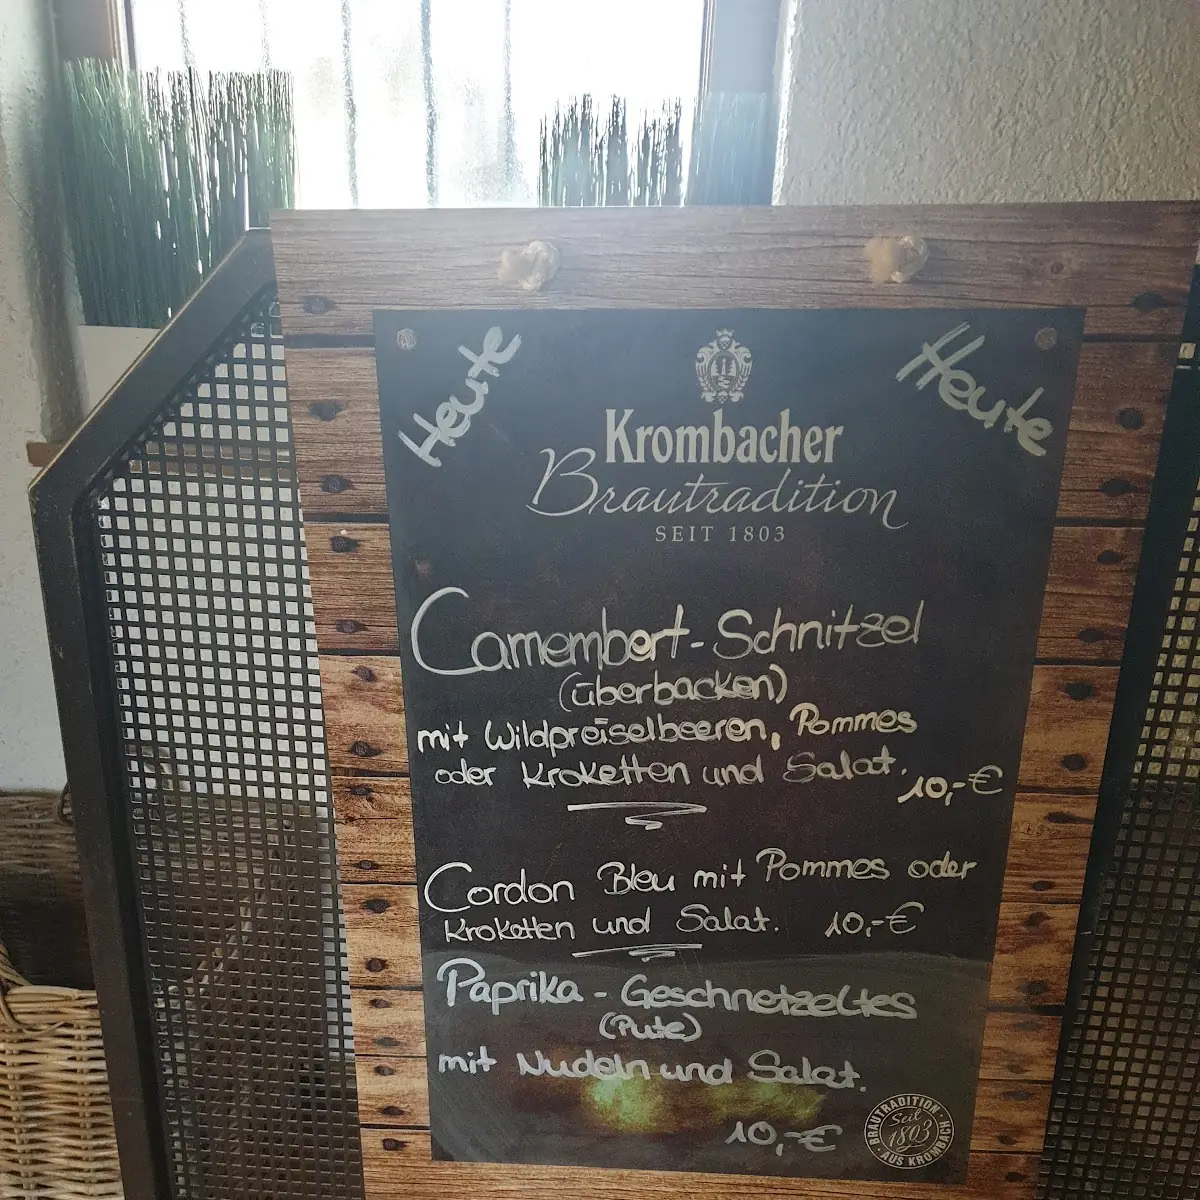 Heute
Heute
Krombacher
Brautradition
SEIT 1803
Camembert-Schnitzel
(überbacken)
mit Wildpreiselbeeren, Pommes
oder Kroketten und Salat.
10,-€
Cordon Bleu mit Pommes oder
Kroketten und Salat. 10,-€
Paprika-Geschnetzeltes
(Pute)
mit Nudeln und Salat.
10,-€
BRAUTRADITION
Seit
1803
AUS KROMBACH